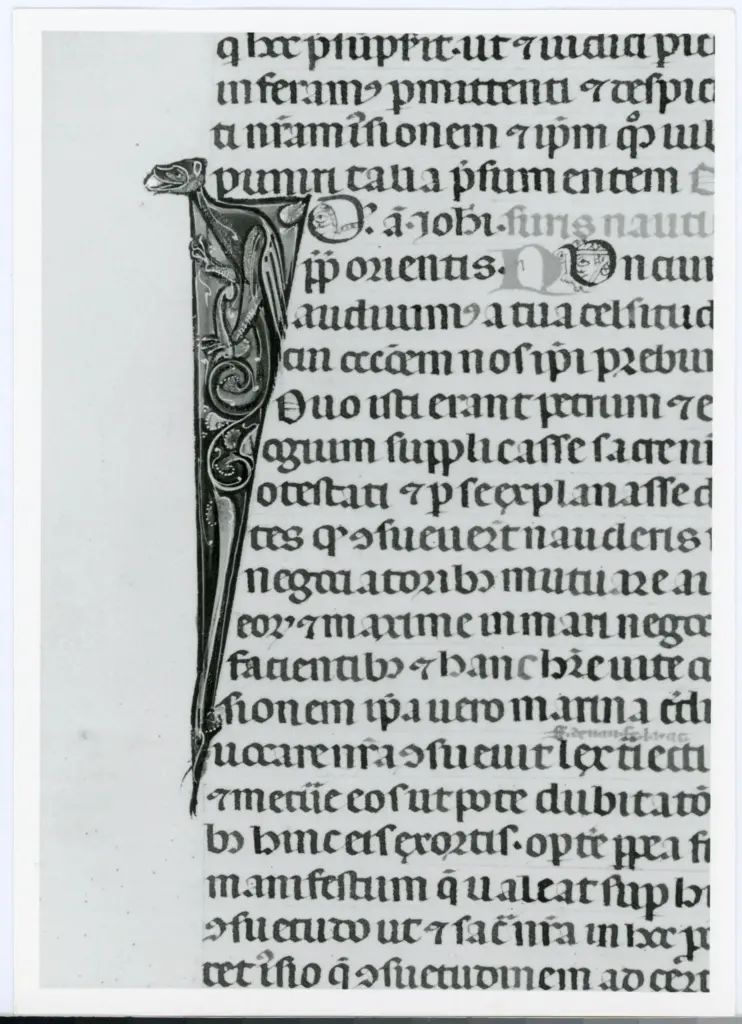 q hec psupserit. ut ⁊ iudicii pic
inferamꝰ pmittenti ⁊ despic
ti nr̃am iussionem ⁊ ipm qd iub
puniri talia p̃sumentem
ã. Johi. furis nauti
pp̃ orientis. On ciuir
audiuimꝰ a tua celsitud
an ccc̃cem nos ipi prebui
Duo isti erant petrum ⁊ e
ogium supplicasse sacre ni
otestati ⁊ p se explanasse d
tes q̃ ↄsueuer̃t nauderis
negotiatoribꝫ mutuare au
eoꝝ ⁊ maxime in mari negoc
facientibꝫ ⁊ hanc hr̃e uite o
sionem ip̃a uero marina cdi
uocare nr̃a ↄsueuit lex
⁊ metu eo sut pote dubitatõ
bꝫ hinc eis exortis. opte ppea fi
manifestum q̃ ualeat sup hi
ↄsuetudo ut ⁊ sac̃ nr̃a in hoc p
cet iussio q̃ ↄsuetudinem ad cert